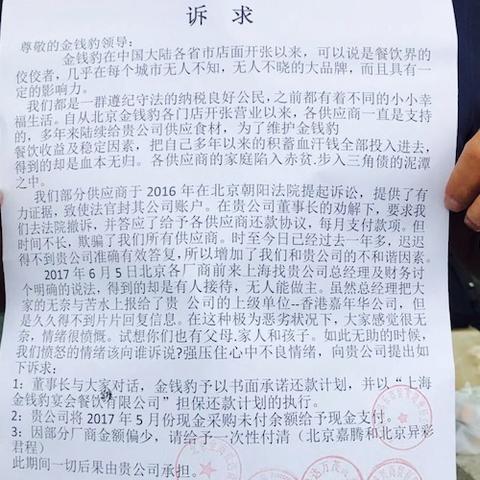 诉 求
尊敬的金钱豹领导：
金钱豹在中国大陆各省市店面开张以来，可以说是餐饮界的
佼佼者，几乎在每个城市无人不知，无人不晓的大品牌，而且具有一
定的影响力。
我们都是一群遵纪守法的纳税良好公民，之前都有着不同的小小幸
福生活。自从北京金钱豹各门店开张营业以来，各供应商一直是支持
的，多年来陆续给贵公司供应食材，为了维护金钱豹
餐饮收益及稳定因素，把自己多年以来的积蓄血汗钱全部投入进去，
得到的却是血本无归。各供应商的家庭陷入赤贫.步入三角债的泥潭
之中。
我们部分供应商于 2016 年在北京朝阳法院提起诉讼，提供了有
力证据，致使法官封其公司账户。在贵公司董事长的劝解下，要求我
们去法院撤诉，并答应了给予各供应商还款协议，每月支付款项。但
时间不长，欺骗了我们所有供应商。时至今日已经过去一年多，迟迟
得不到贵公司准确有效答复，所以增加了我们和贵公司的不和谐因素。
2017 年 6 月 5 日北京各厂商前来上海找贵公司总经理及财务讨
个明确的说法，得到的却是有人接待，无人能做主。虽然总经理把大
家的无奈与苦水上报给了贵 公司的上级单位--香港嘉年华公司，但
是久久得不到片片回复信息。在这种极为恶劣状况下，大家感觉很无
奈，情绪很愤慨。试想你们也有父母.家人和孩子。如此无助的时候，
我们愤怒的情绪该向谁诉说?强压住心中不良情绪，向贵公司提出如
下诉求：
1：董事长与大家对话，金钱豹予以书面承诺还款计划，并以“上海
金钱豹宴会餐饮有限公司”担保还款计划的执行。
2：贵公司将 2017 年 5 月份现金采购未付余额给予现金支付。
3：因部分厂商金额偏少，请给予一次性付清（北京嘉腾和北京异彩
君程）
此期间一切后果由贵公司承担。